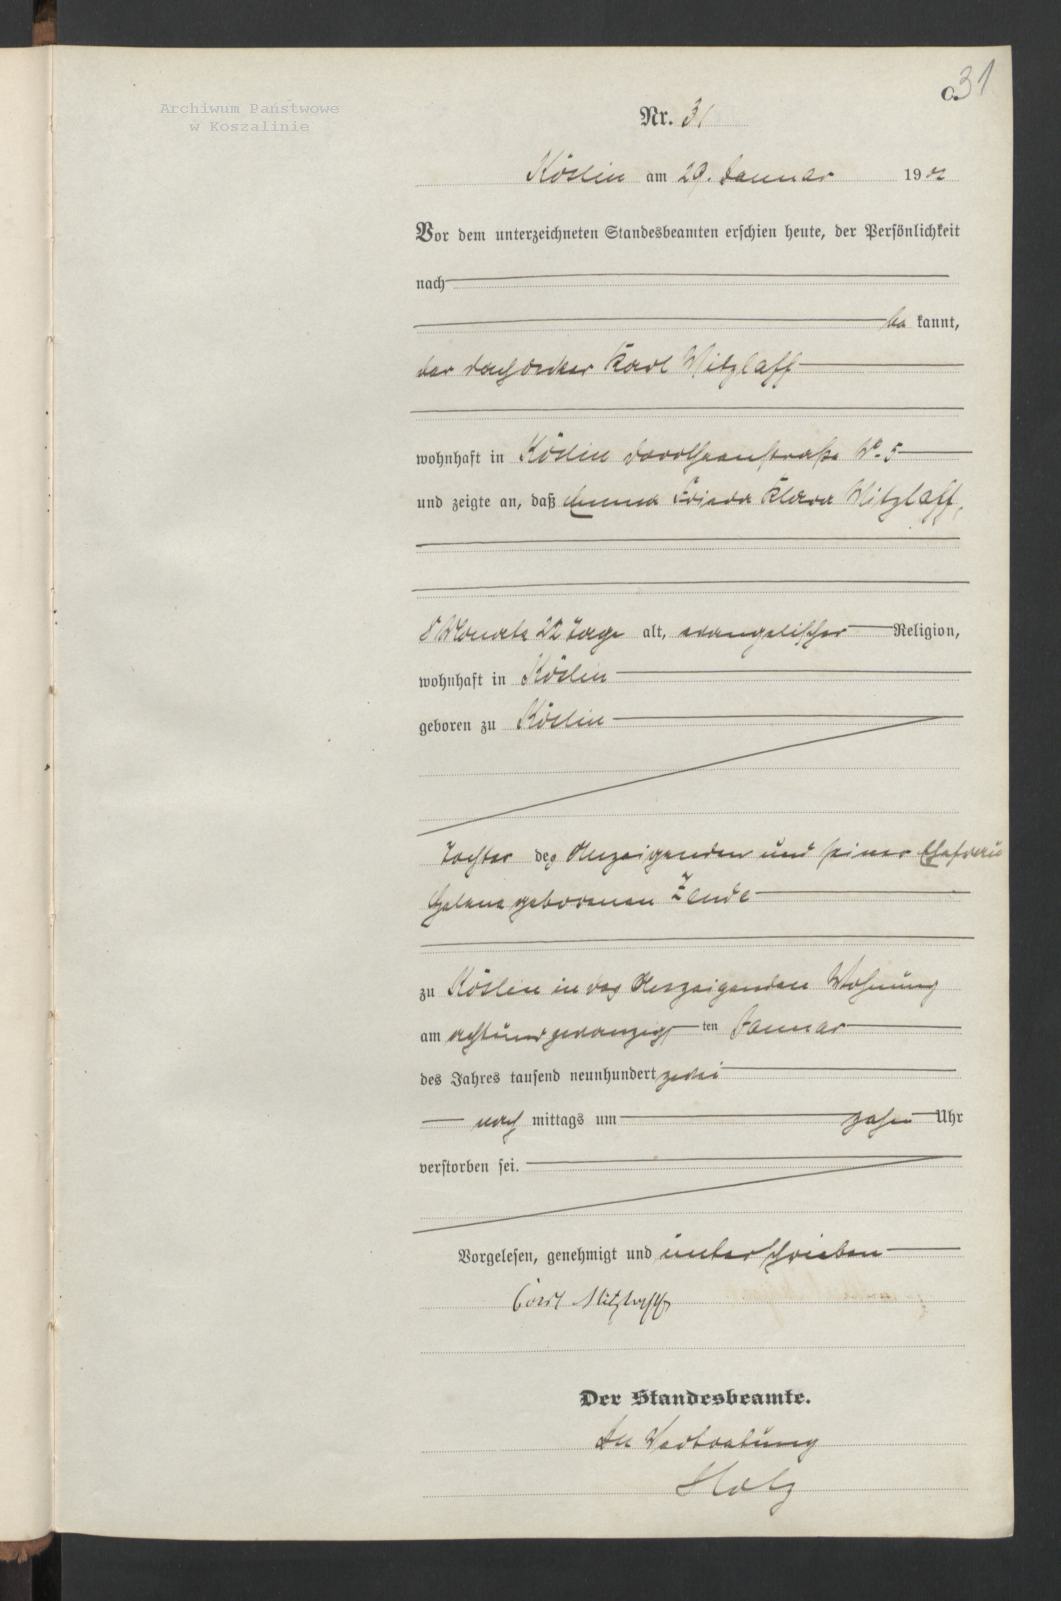 31
Archiwum Państwowe
w Koszalinie
C.
Nr. 31
Köslin am 29. Januar 1902
Vor dem unterzeichneten Standesbeamten erschien heute, der Persönlichkeit
nach
be kannt,
der Dachdecker Karl Witzlaff
wohnhaft in Köslin Dorotheenstraße No. 5
und zeigte an, daß Emma Frieda Klara Witzlaff,
8 Monate 22 Tage alt, evangelischer Religion,
wohnhaft in Köslin
geboren zu Köslin
Tochter des Anzeigenden und seiner Ehefrau
Helene geborenen
zu Köslin in des Anzeigenden Wohnung
am achtundzwanzig ten Januar
des Jahres tausend neunhundert zwei
nach mittags um zehn Uhr
verstorben sei.
Vorgelesen, genehmigt und unterschrieben
Carl Witzlaff
Der Standesbeamte.
In Vertretung